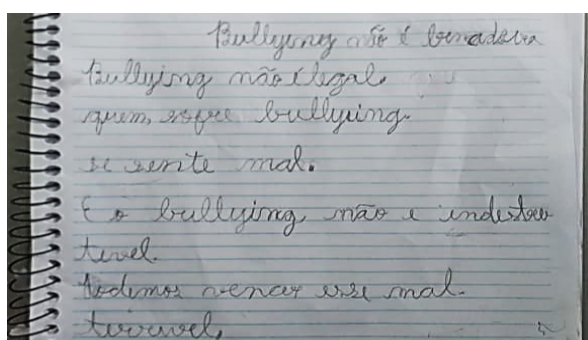 Bullying não é brincadeira
Bullying não é legal.
quem sofre bullying.
se sente mal.
E o bullying não é indestru
tivel.
Podemos vencer esse mal.
terrivel,